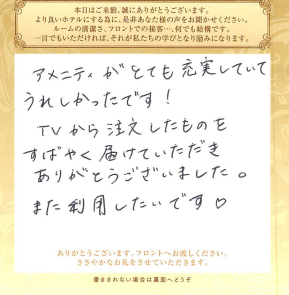 本日はご来館、誠にありがとうございます。
より良いホテルにする為に、是非あなた様の声をお聞かせください。
ルームの清潔さ、フロントでの接客…何でも結構です。
一言でもいただければ、それが私たちの学びとなり励みになります。
アメニティがとても充実していて
うれしかったです!
TVから注文したものを
すばやく届けていただき
ありがとうございました。
また利用したいです♡
ありがとうございます。フロントへお渡しください。
ささやかなお礼をさせていただきます。
書ききれない場合は裏面へどうぞ